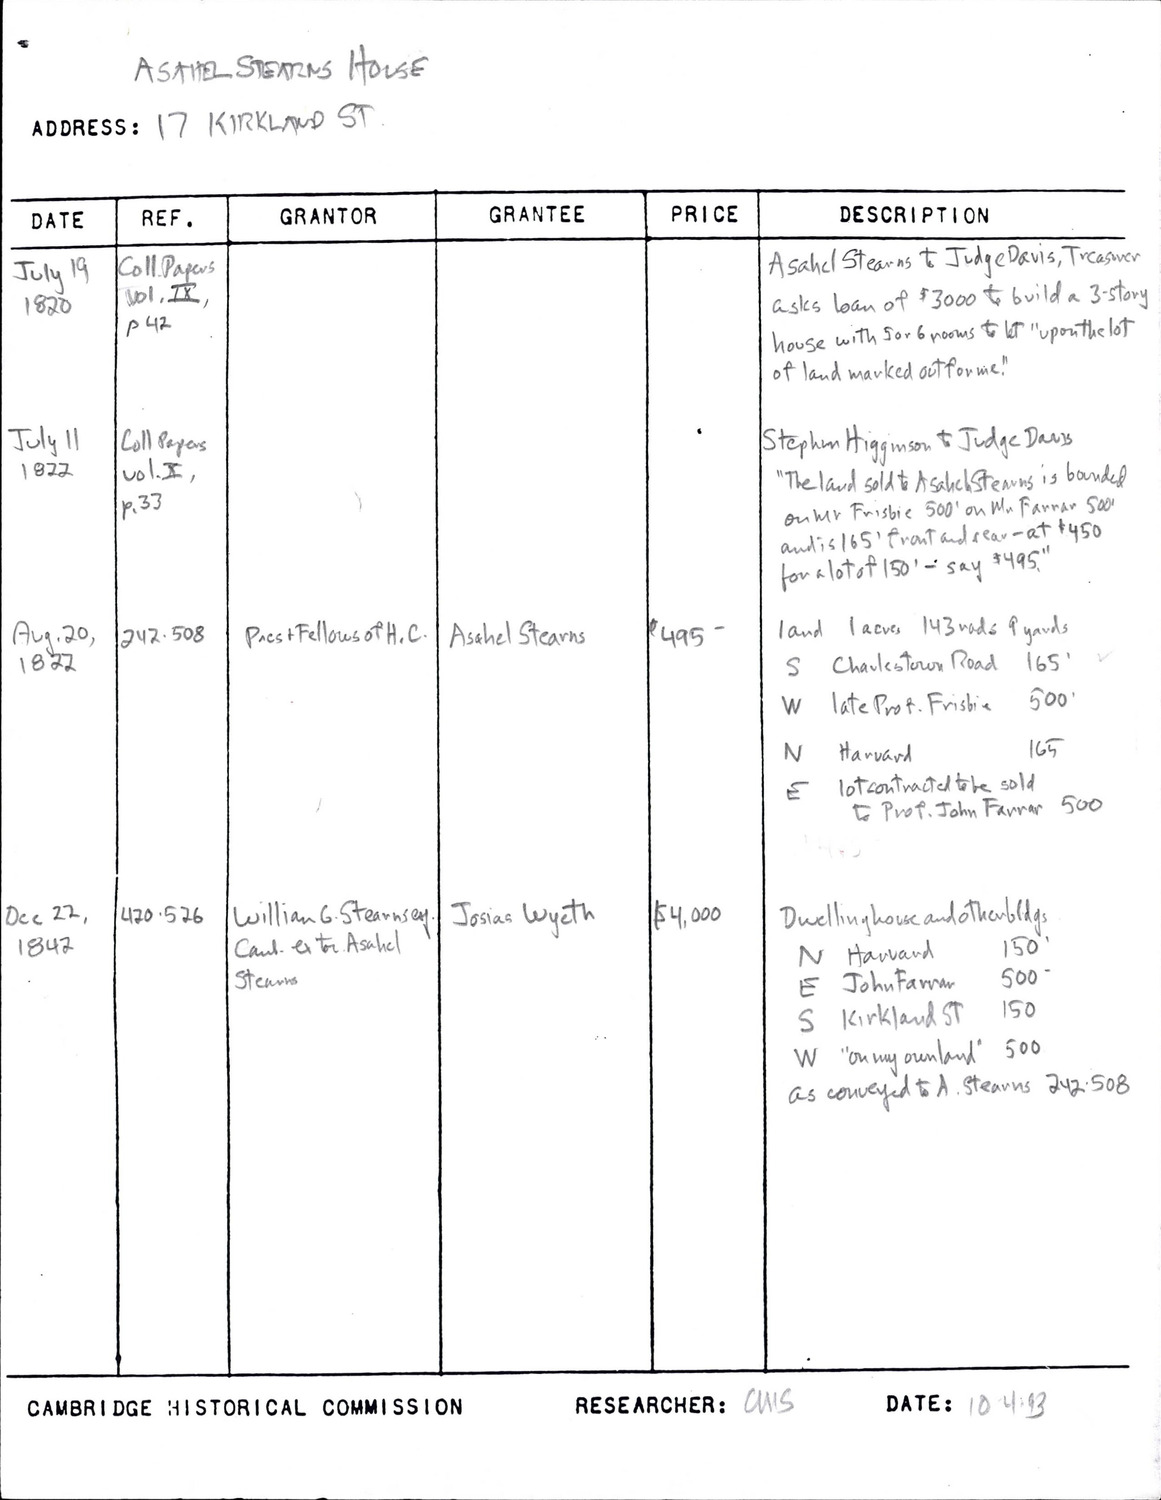 ASAHEL STEARNS HOUSE
ADDRESS: 17 KIRKLAND ST.
DATE REF. GRANTOR GRANTEE PRICE DESCRIPTION
July 19
1820
Coll. Papers
vol. IX,
p 42
Asahel Stearns to Judge Davis, Treasurer
asks loan of $3000 to build a 3-story
house with 5 or 6 rooms to let "upon the lot
of land marked out for me."
July 11
1822
Coll Papers
vol. X,
p. 33
Stephen Higginson to Judge Davis
"The land sold to Asahel Stearns is bounded
on Mr Frisbie 500' on Mr Farrar 500'
and is 165' front and rear – at $450
for a lot of 150' – say $495."
Aug. 20,
1822
242·508
Pres + Fellows of H.C.
Asahel Stearns
$495 –
land 1 acres 143 rods 9 yards
S Charlestown Road 165'
W late Prof. Frisbie 500'
N Harvard 165
E lot contracted to be sold
to Prof. John Farrar 500
Dec 22,
1842
420·526
William G. Stearns
Camb. Asahel
Stearns
Josias Wyeth
$4,000
Dwelling house and other bldgs
N Harvard 150'
E John Farrar 500-
S Kirkland ST 150
W "on my own land" 500
as conveyed to A. Stearns 242·508
CAMBRIDGE HISTORICAL COMMISSION RESEARCHER: DATE: 10·4·93